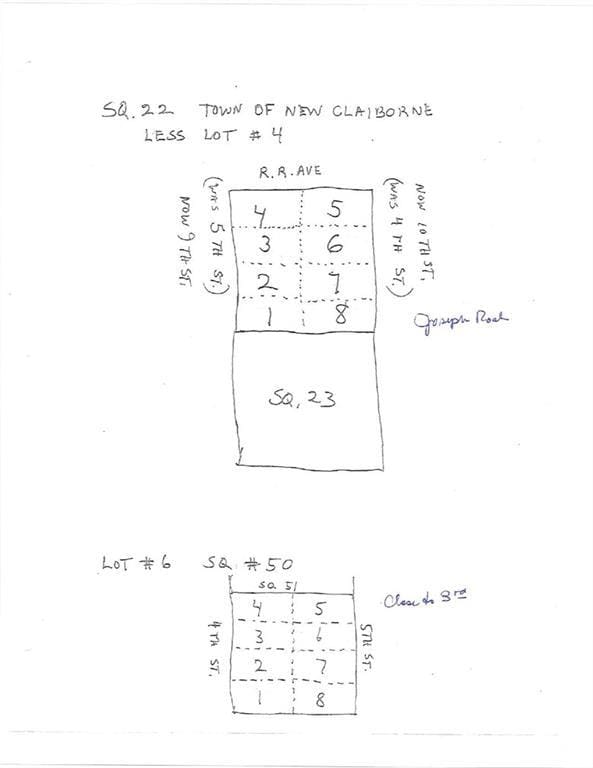 SQ. 22 TOWN OF NEW CLAIBORNE
LESS LOT # 4
R.R. AVE
NOW 9 TH ST.
(WAS 5 TH ST.)
4 5
3 6
2 7
1 8
(WAS 4 TH ST.)
NOW 10 TH ST.
Joseph
SQ. 23
LOT # 6 SQ # 50
SQ 51
4 TH ST.
4 5
3 6
2 7
1 8
5TH ST.
Close to 3rd